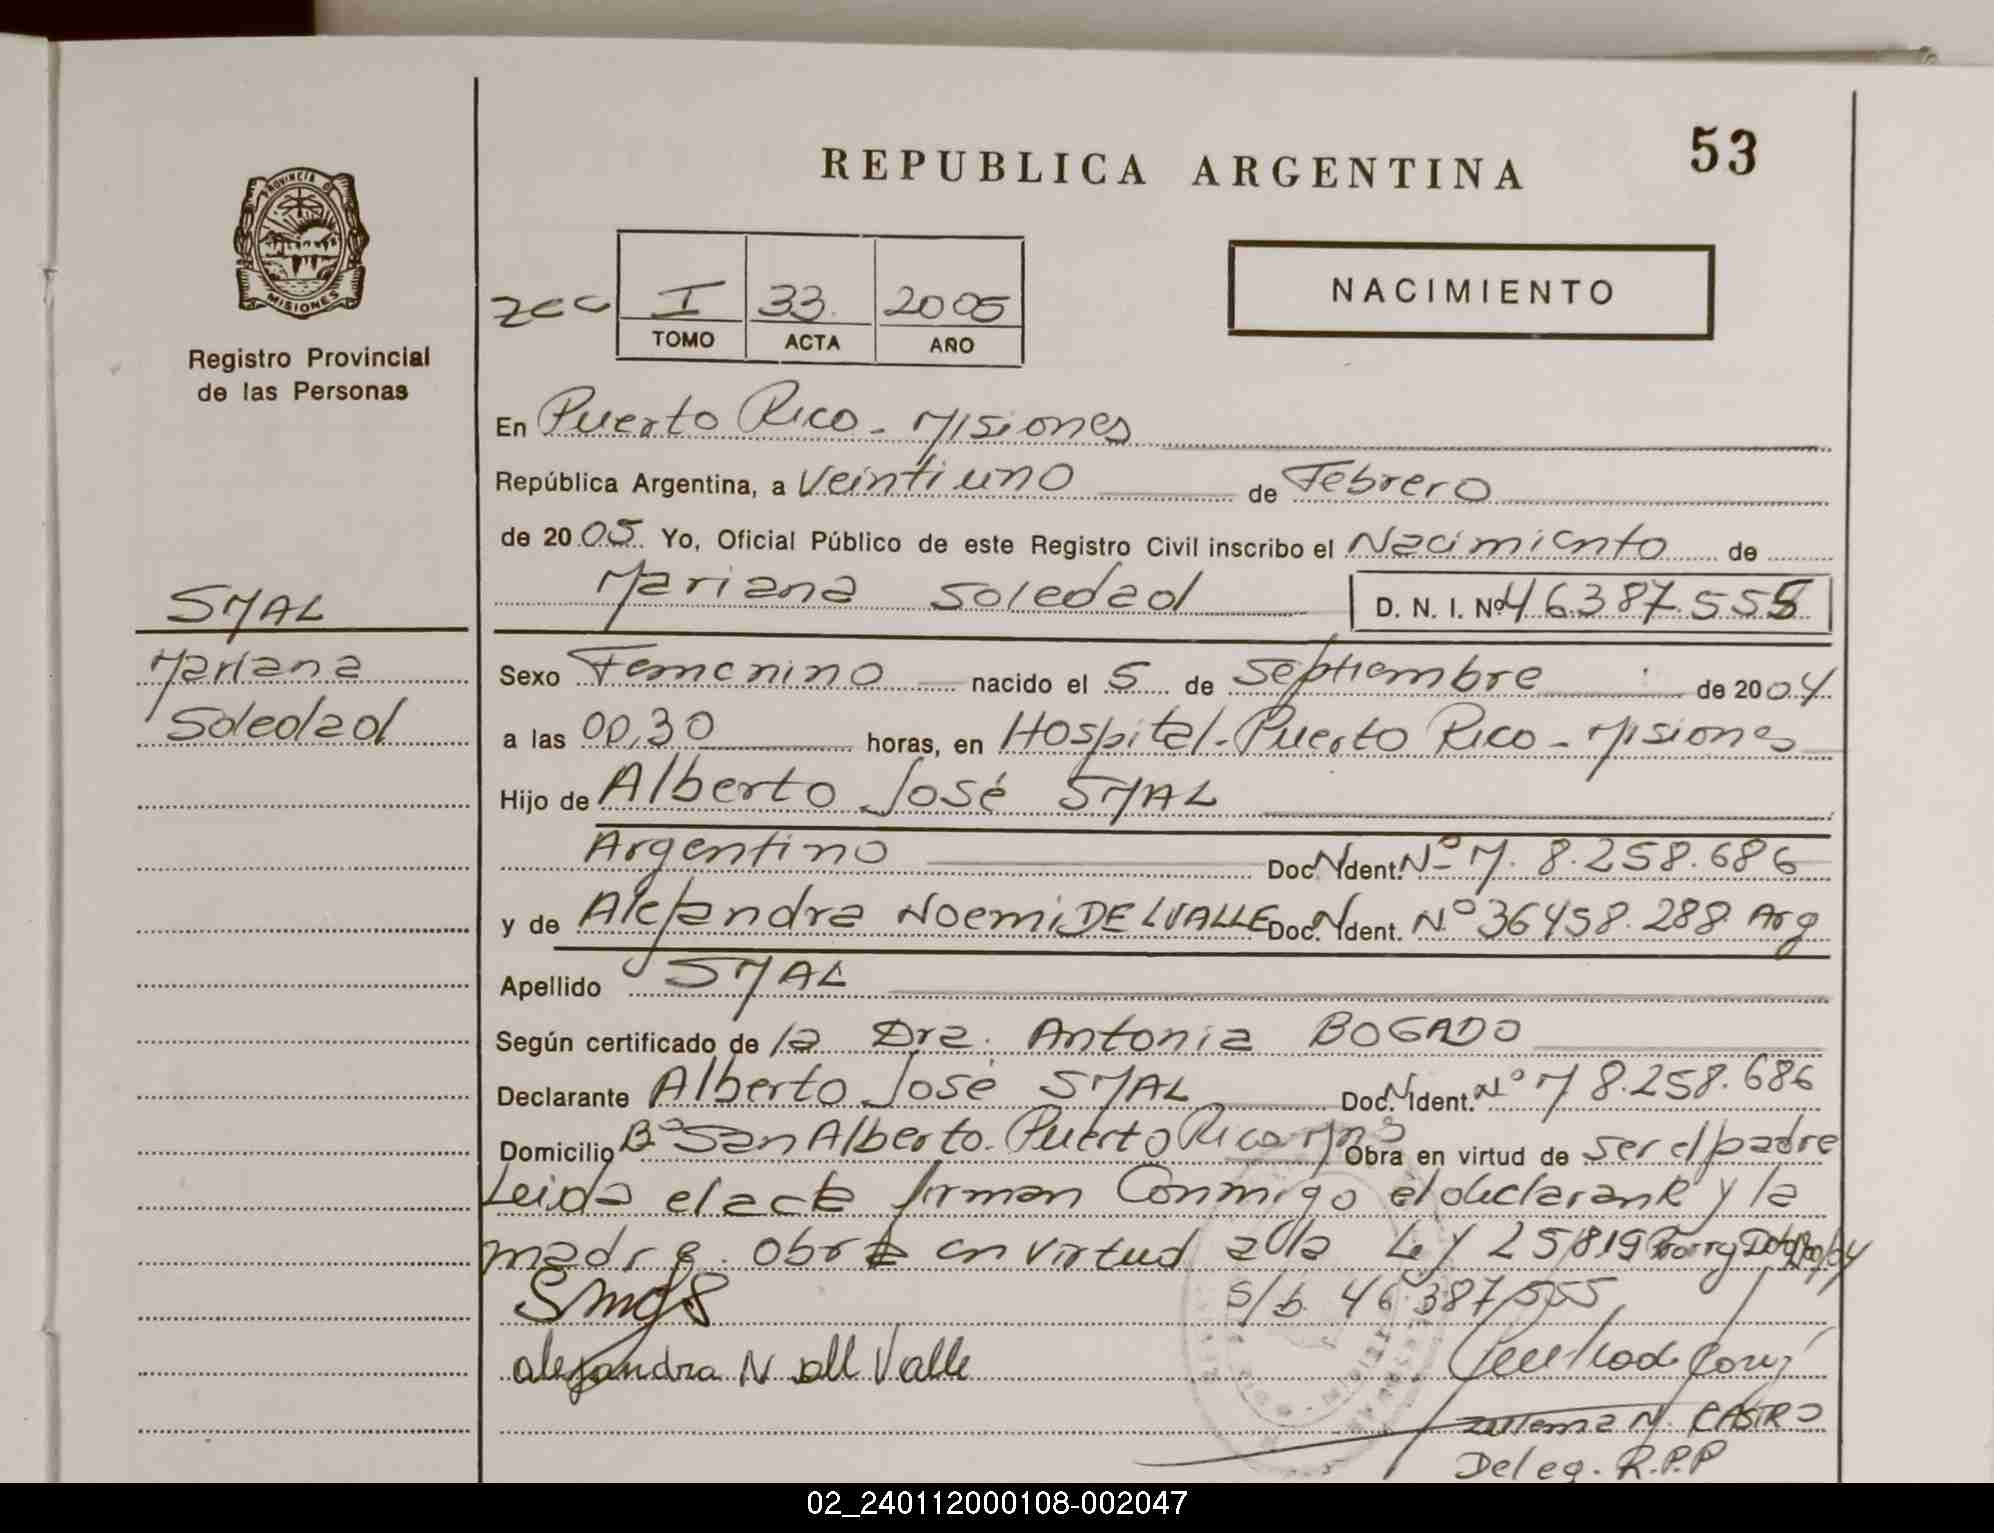 53
REPUBLICA ARGENTINA
PROVINCIA DE
MISIONES
Registro Provincial
de las Personas
NACIMIENTO
I 33 2005
TOMO ACTA AÑO
En Puerto Rico - Misiones
República Argentina, a Veintiuno de Febrero
de 2005 Yo, Oficial Público de este Registro Civil inscribo el Nacimiento de
Mariana Soledad D. N. I. Nº 46.387.555
SMAL
Mariana
Soledad
Sexo Femenino nacido el 5 de Septiembre de 2004
a las 00,30 horas, en Hospital - Puerto Rico - Misiones
Hijo de Alberto José SMAL
Argentino Doc. N Ident. Nº M. 8.258.686
y de Alejandra Noemi DEL VALLE Doc. N Ident. Nº 36458.288 Arg
Apellido SMAL
Según certificado de la Dra. Antonia BOGADO
Declarante Alberto José SMAL Doc. N Ident. Nº M 8.258.686
Domicilio Bº San Alberto. Puerto Rico Mns Obra en virtud de ser el padre
Leida el acta firman Conmigo el declarante y la
madre. Obra en virtud a la Ley 25819
s/b. 46.387.555
alejandra N del Valle
Zulema N. CASTRO
Deleg. R.P.P
02_240112000108-002047